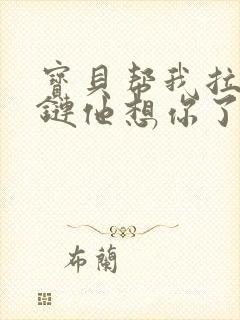 寶貝幫我拉
鏈他想你了
布蘭